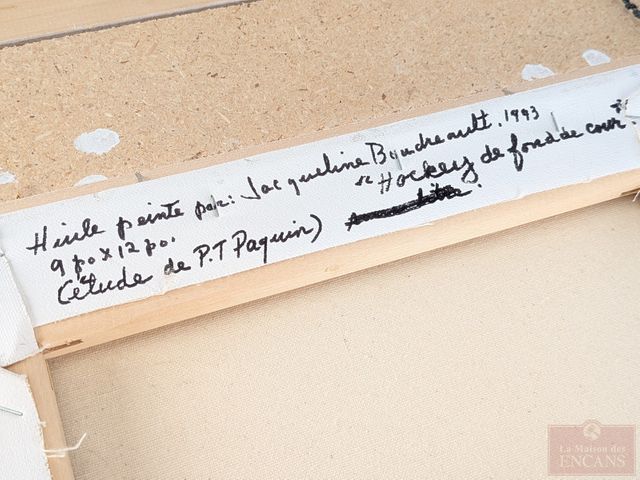 Huile peinte par: Jacqueline Boudreault. 1993
9 po x 12 po. "Hockey de fond de cour".
(étude de P.T Paquin)
La Maison des
ENCANS